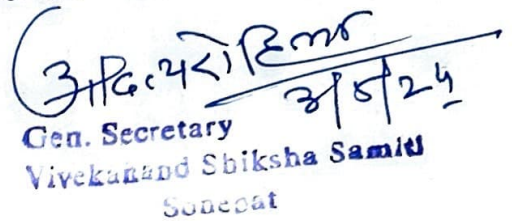 आदित्य रोहिल्ला
Gen. Secretary
Vivekanand Shiksha Samiti
Sonepat